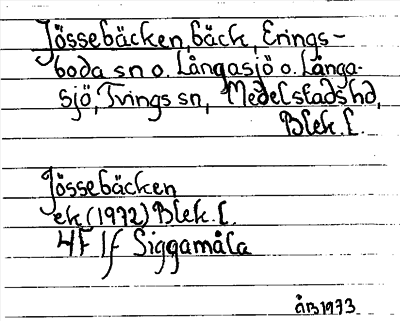 Jössebäcken, bäck, Erings-
boda sn o. Långasjö o. Långa-
sjö, Tvings sn, Medelstads hd,
Blek. l.
Jössebäcken
ek (1972) Blek. l.
4F 1f Siggamåla
ÅB 1973